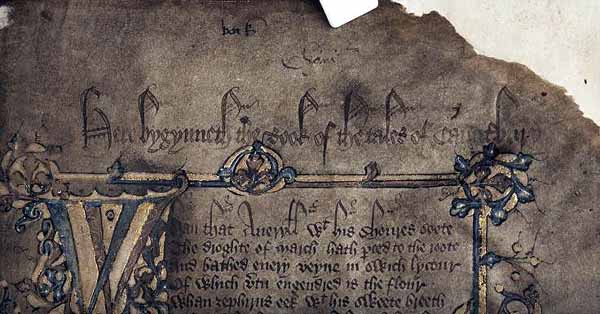 Here bygynneth the Book of the tales of Caunterbury
Whan that Aueryll wt his shoures soote
The droghte of march hath pced to the roote
And bathed euery veyne in swich lycour
Of which vtu engendred is the flour
Whan zephirus eek wt his sweete breeth